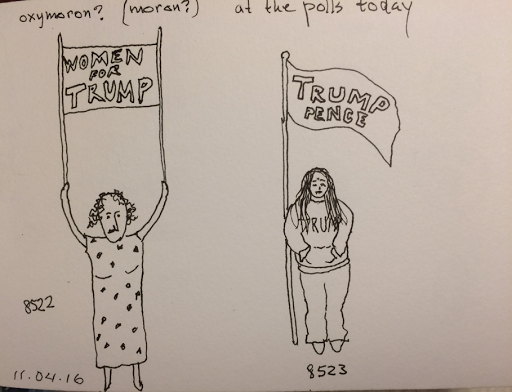 oxymoron? (moron?) at the polls today
WOMEN
FOR
TRUMP
TRUMP
PENCE
TRUM
8522
11.04.16
8523